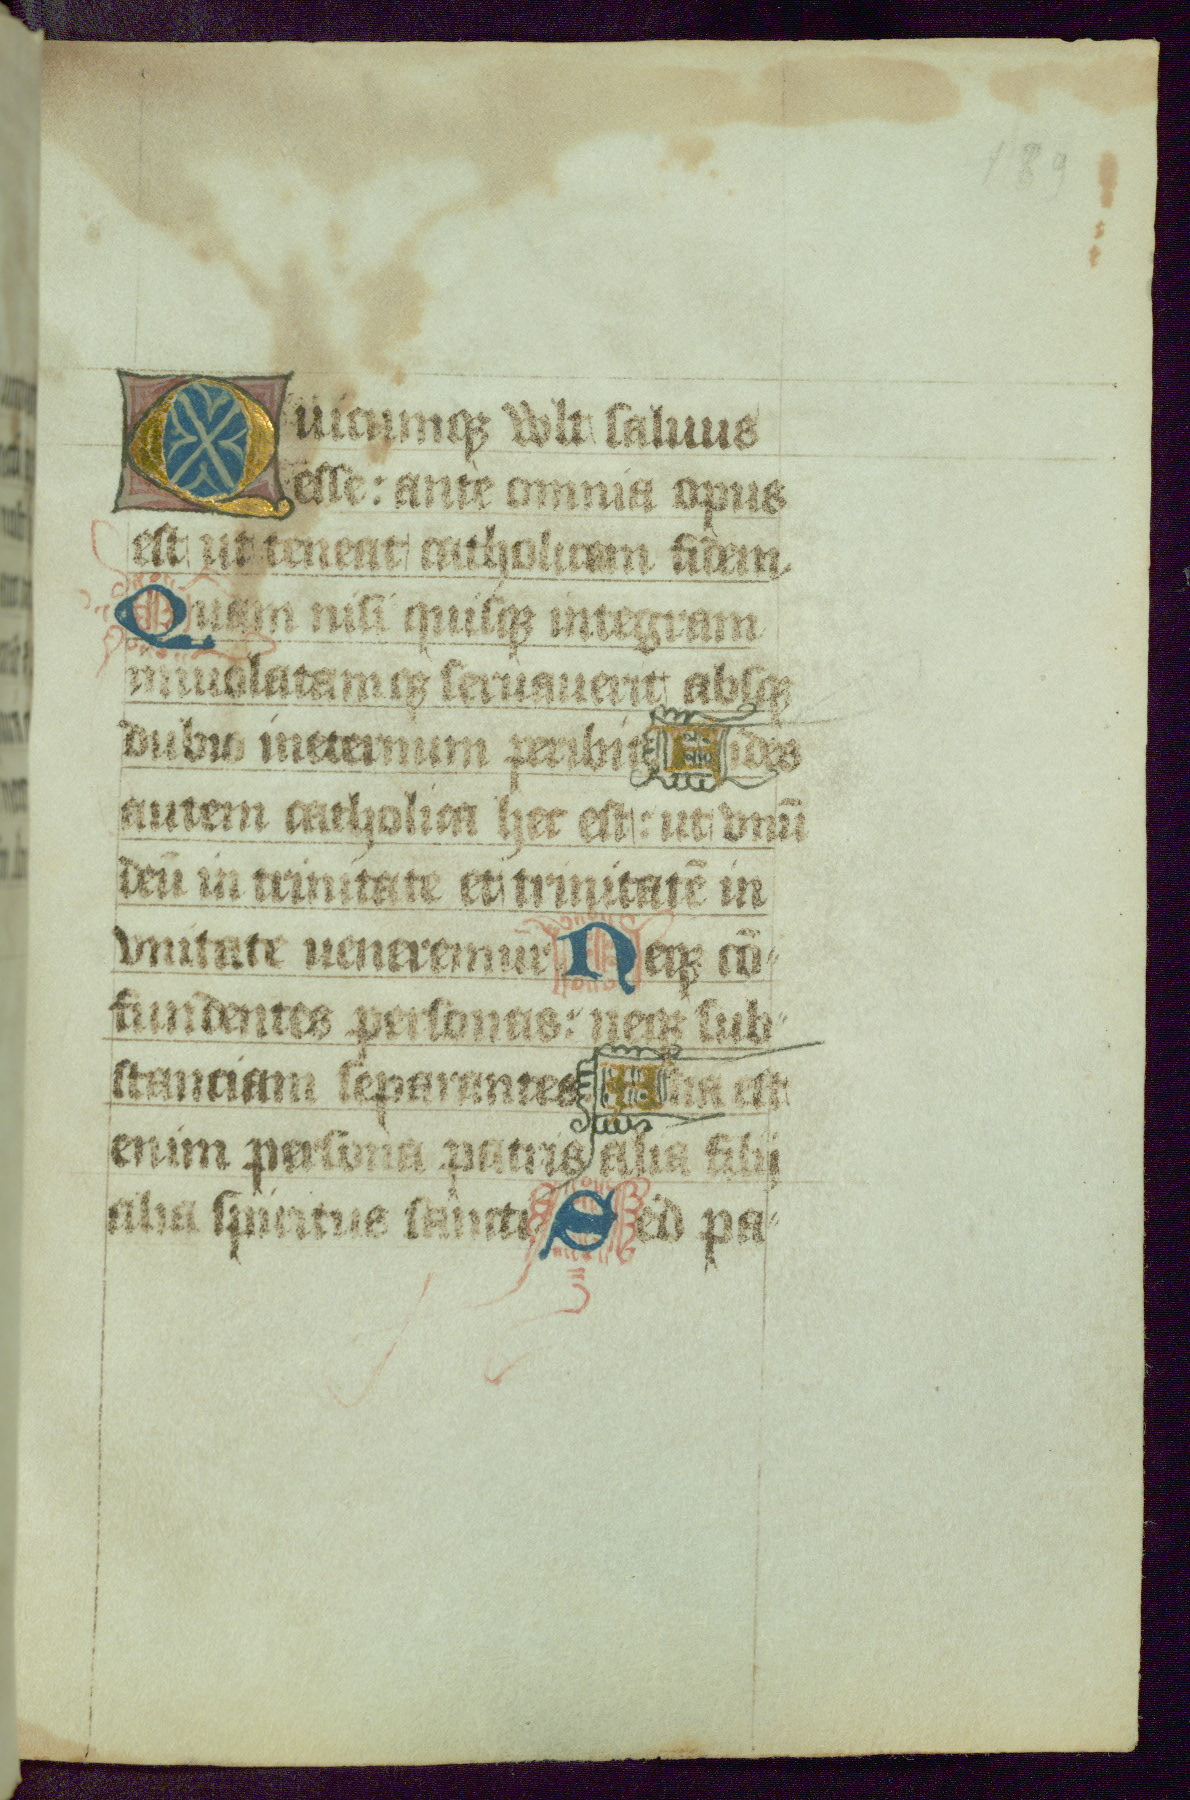 189
Quicumqꝫ vult saluus
esse: ante omnia opus
est ut teneat catholicam fidem.
Quam nisi quisqꝫ integram
inuiolatamqꝫ seruauerit absqꝫ
dubio ineternum peribit Fides
autem catholica hec est: ut vnū
deū in trinitate et trinitatē in
vnitate ueneremur Neqꝫ cō-
fundentes personas: neqꝫ sub-
stanciam separantes. Alia est
enim persona patris alia filij
alia spiritus sancti Sed pa-